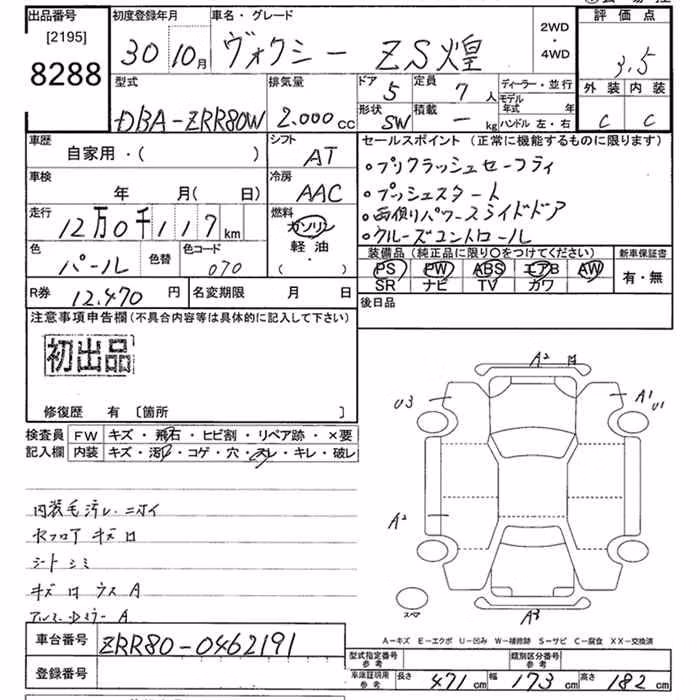 出品番号 初度登録年月 車名・グレード 2WD・4WD 評価点
[2195] 8288 30 10月 ヴォクシー ZS煌 3.5
型式 排気量 ドア 5 定員 7人 ディーラー・並行 外装 内装
DBA-ZRR80W 2.000cc 形状 SW 積載 - kg モデル年式 年 ハンドル 左・右 C C
車歴 自家用・( ) シフト AT セールスポイント(正常に機能するものに限ります)
・プリクラッシュセーフティ
車検 年 月( 日) 冷房 AAC ・プッシュスタート
走行 12万0千117km 燃料 ガソリン 軽油 ・( ) ・両側パワースライドドア
色 パール 色替 色コード 070 ・クルーズコントロール
装備品(純正品に限り○をつけてください) 新車保証書
PS PW ABS エアB AW 有・無
SR ナビ TV カワ
R券 12.470円 名変期限 月 日 後日品
注意事項申告欄(不具合内容等は具体的に記入して下さい)
初出品
修復歴 有 〔箇所 〕
検査員記入欄 FW キズ・飛石・ヒビ割・リペア跡・×要
内装 キズ・汚れ・コゲ・穴・スレ・キレ・破レ
内装毛汚レ ニホイ
キズ ロ
シート シミ
キズ ロ ウス A
A2 U3 A1 U1 A2 A3 スペア
A-キズ E-エクボ U-凹み W-補修跡 S-サビ C-腐食 XX-交換済
車台番号 ZRR80-0462191
登録番号
型式指定番号 参考 類別区分番号 参考
車庫証明用 参考 長さ 471cm 幅 173cm 高さ 182cm